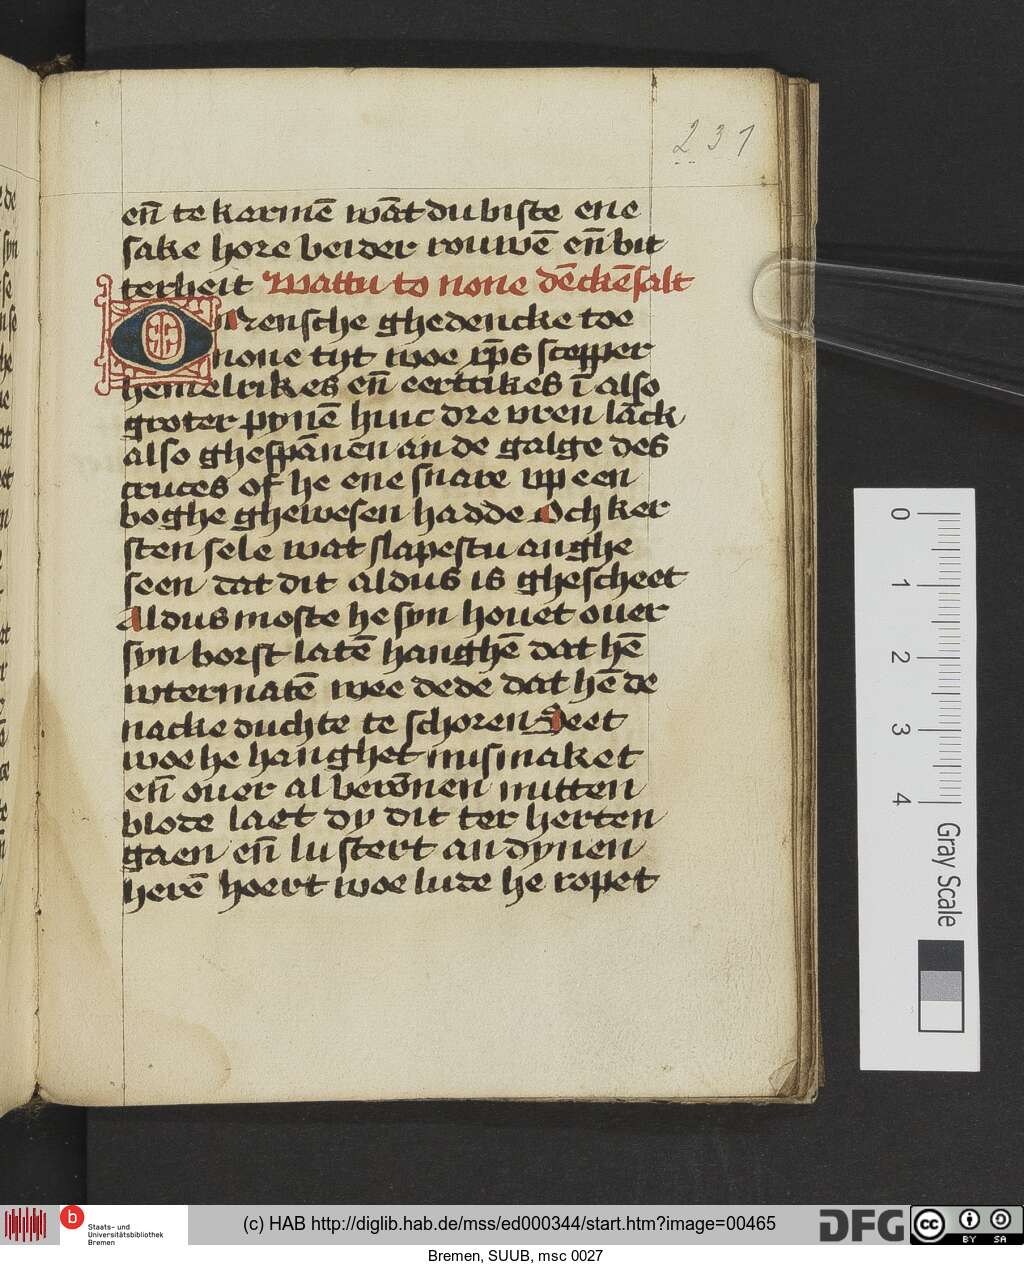 231
en̄ te karmē wāt du biste ene
sake hore beider rouwē en̄ bit
terheit Wattu to none dēckē salt
O Mensche ghedencke toe
none tijt woe xp̄s scepper
hemelrikes en̄ eertrikes ī also
groter pynē hinc dre vren lāck
also ghespānen an de galge des
cruces of he ene snare vp een
boghe ghewesen hadde Och ker
sten sele wat slapestu anghe
seen dat dit aldus is ghescheet
Aldus moste he syn houet ouer
syn borst latē hanghē dat hē
wtermatē wee dede dat hē de
nacke duchte te schoren Seet
woe he hanghet mismaket
en̄ ouer al berōnen mitten
blode laet dy dit ter herten
gaen en̄ lustert an dynen
herē hoert woe lude he ropet
0
1
2
3
4
Gray Scale
b
Staats- und
Universitätsbibliothek
Bremen
(c) HAB http://diglib.hab.de/mss/ed000344/start.htm?image=00465
DFG
cc
BY SA
Bremen, SUUB, msc 0027